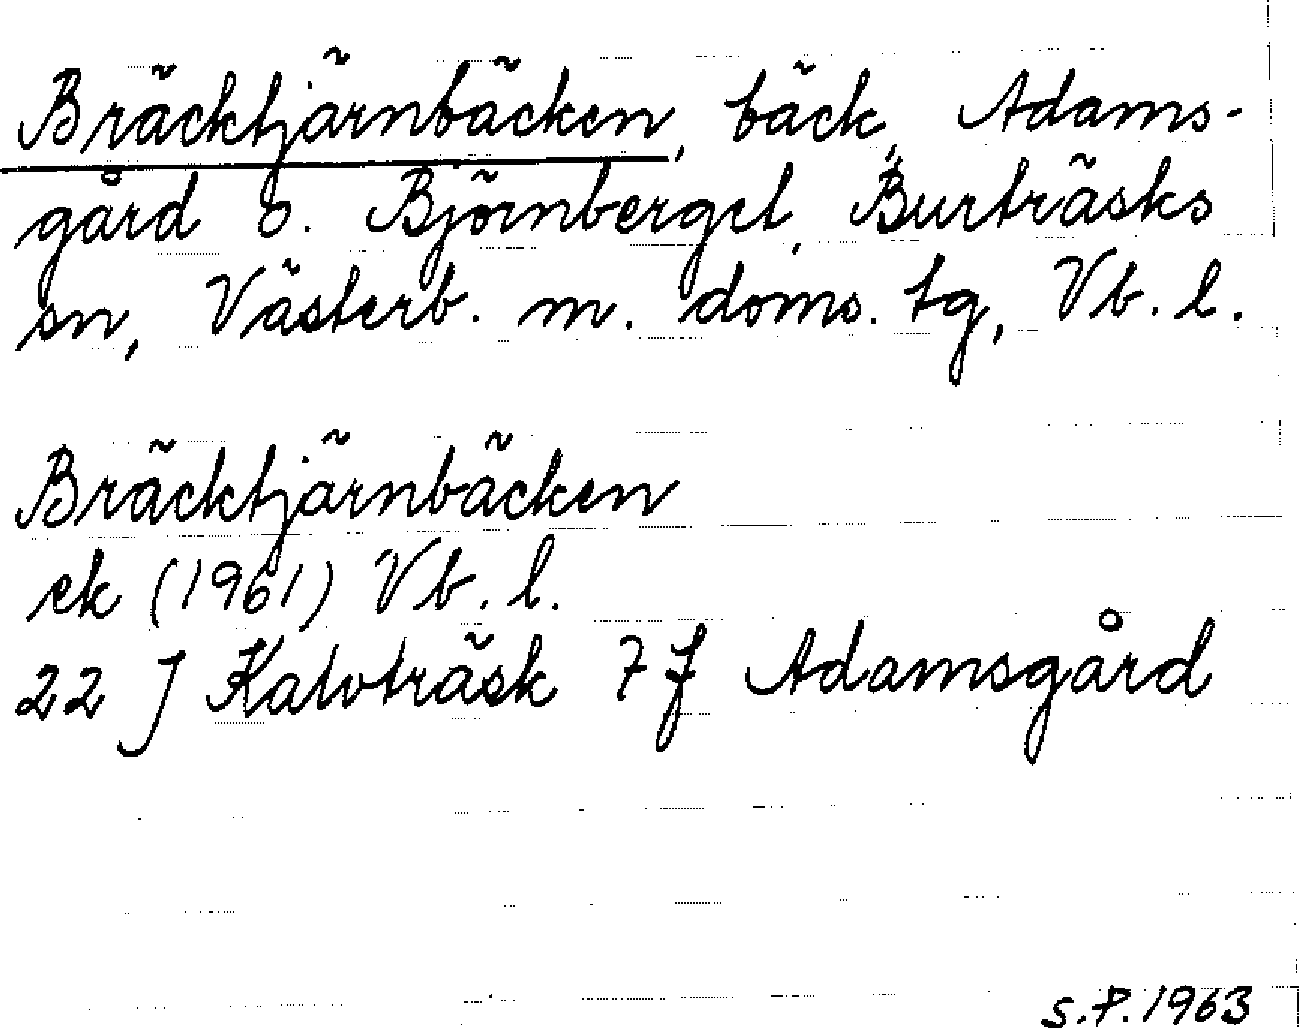 Bräcktjärnbäcken, bäck, Adams-
gård o. Björnberget, Burträsks
sn, Västerb. m. doms. tg, Vb. l.
Bräcktjärnbäcken
ek (1961) Vb. l.
22 J Kalvträsk 7 f Adamsgård
S.P. 1963